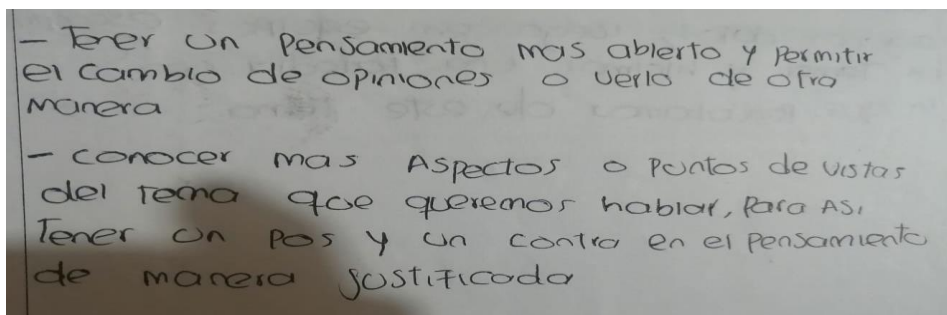 - Tener un Pensamiento mas abierto y Permitir
el cambio de opiniones o verlo de otra
manera
- conocer mas Aspectos o Puntos de vistas
del Tema que queremos hablar, Para Asi
Tener un Pos y un contra en el Pensamiento
de manera justificada